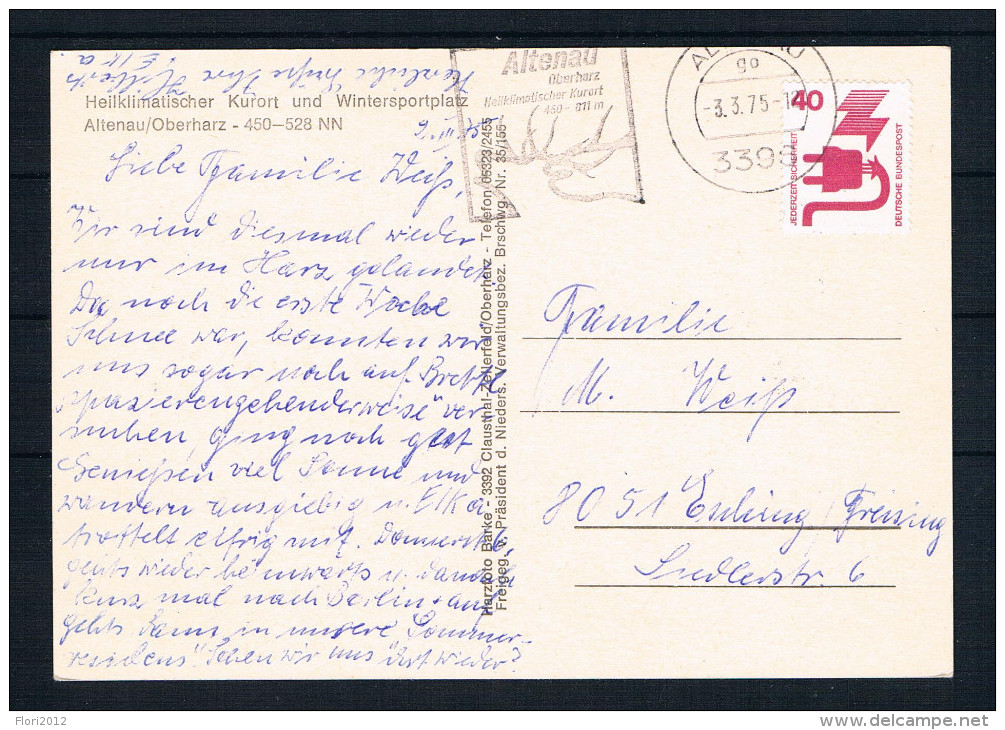 Herzliche Grüße Ihre
Elka
Heilklimatischer Kurort und Wintersportplatz
Altenau/Oberharz - 450–528 NN
Liebe Familie Weiß,
Wir sind diesmal wieder
nur im Harz gelandet.
Da noch die erste Woche
Schnee war, konnten wir
uns sogar noch auf Brettl
"spazierengehenderweise" ver
suchen, ging noch gut
Genießen viel Sonne und
wandern ausgiebig u. Elka
trottelt eifrig mit. Donnerstag,
gehts wieder heimwärts u. danach
kurz mal nach Berlin + auf
gehts dann in unsere "Sommer-
residens". Sehen wir uns dort wieder?
Harzfoto Barke - 3392 Clausthal-Zellerfeld/Oberharz - Telefon 05323/2455
Freigeg. v. Präsident d. Nieders. Verwaltungsbez. Brschwg. Nr. 35/155
Altenau
Oberharz
Heilklimatischer Kurort
450 - 811 m
go
-3.3.75-1
3396
40
JEDERZEIT SICHERHEIT
DEUTSCHE BUNDESPOST
Familie
M. Weiß
8051 Eching/Freising
Siedlerstr. 6
Flori2012